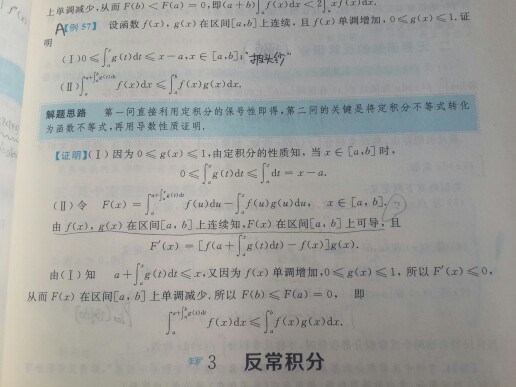 上单调减少,从而 F(b)<F(a)=0,即(a+b)∫ₐᵇf(x)dx<2∫ₐᵇxf(x)dx.
A【例 57】 设函数 f(x),g(x)在区间[a,b]上连续,且 f(x)单调增加,0≤g(x)≤1.证
明
(Ⅰ)0≤∫ₐˣg(t)dt≤x-a,x∈[a,b];
(Ⅱ)∫ₐ^{a+∫ₐᵇg(t)dt}f(x)dx≤∫ₐᵇf(x)g(x)dx.
解题思路 第一问直接利用定积分的保号性即得,第二问的关键是将定积分不等式转化
为函数不等式,再用导数性质证明.
【证明】(Ⅰ)因为 0≤g(x)≤1,由定积分的性质知,当 x∈[a,b]时,
0≤∫ₐˣg(t)dt≤∫ₐˣdt=x-a.
(Ⅱ)令 F(x)=∫ₐ^{a+∫ₐˣg(t)dt}f(u)du-∫ₐˣf(u)g(u)du, x∈[a,b], ?
由 f(x),g(x)在区间[a,b]上连续知,F(x)在区间[a,b]上可导,且
F′(x)=[f(a+∫ₐˣg(t)dt)-f(x)]g(x).
由(Ⅰ)知 a+∫ₐˣg(t)dt≤x,又因为 f(x)单调增加,0≤g(x)≤1,所以 F′(x)≤0,
从而 F(x)在区间[a,b]上单调减少.所以 F(b)≤F(a)=0, 即
∫ₐ^{a+∫ₐᵇg(t)dt}f(x)dx≤∫ₐᵇf(x)g(x)dx.
3 反常积分